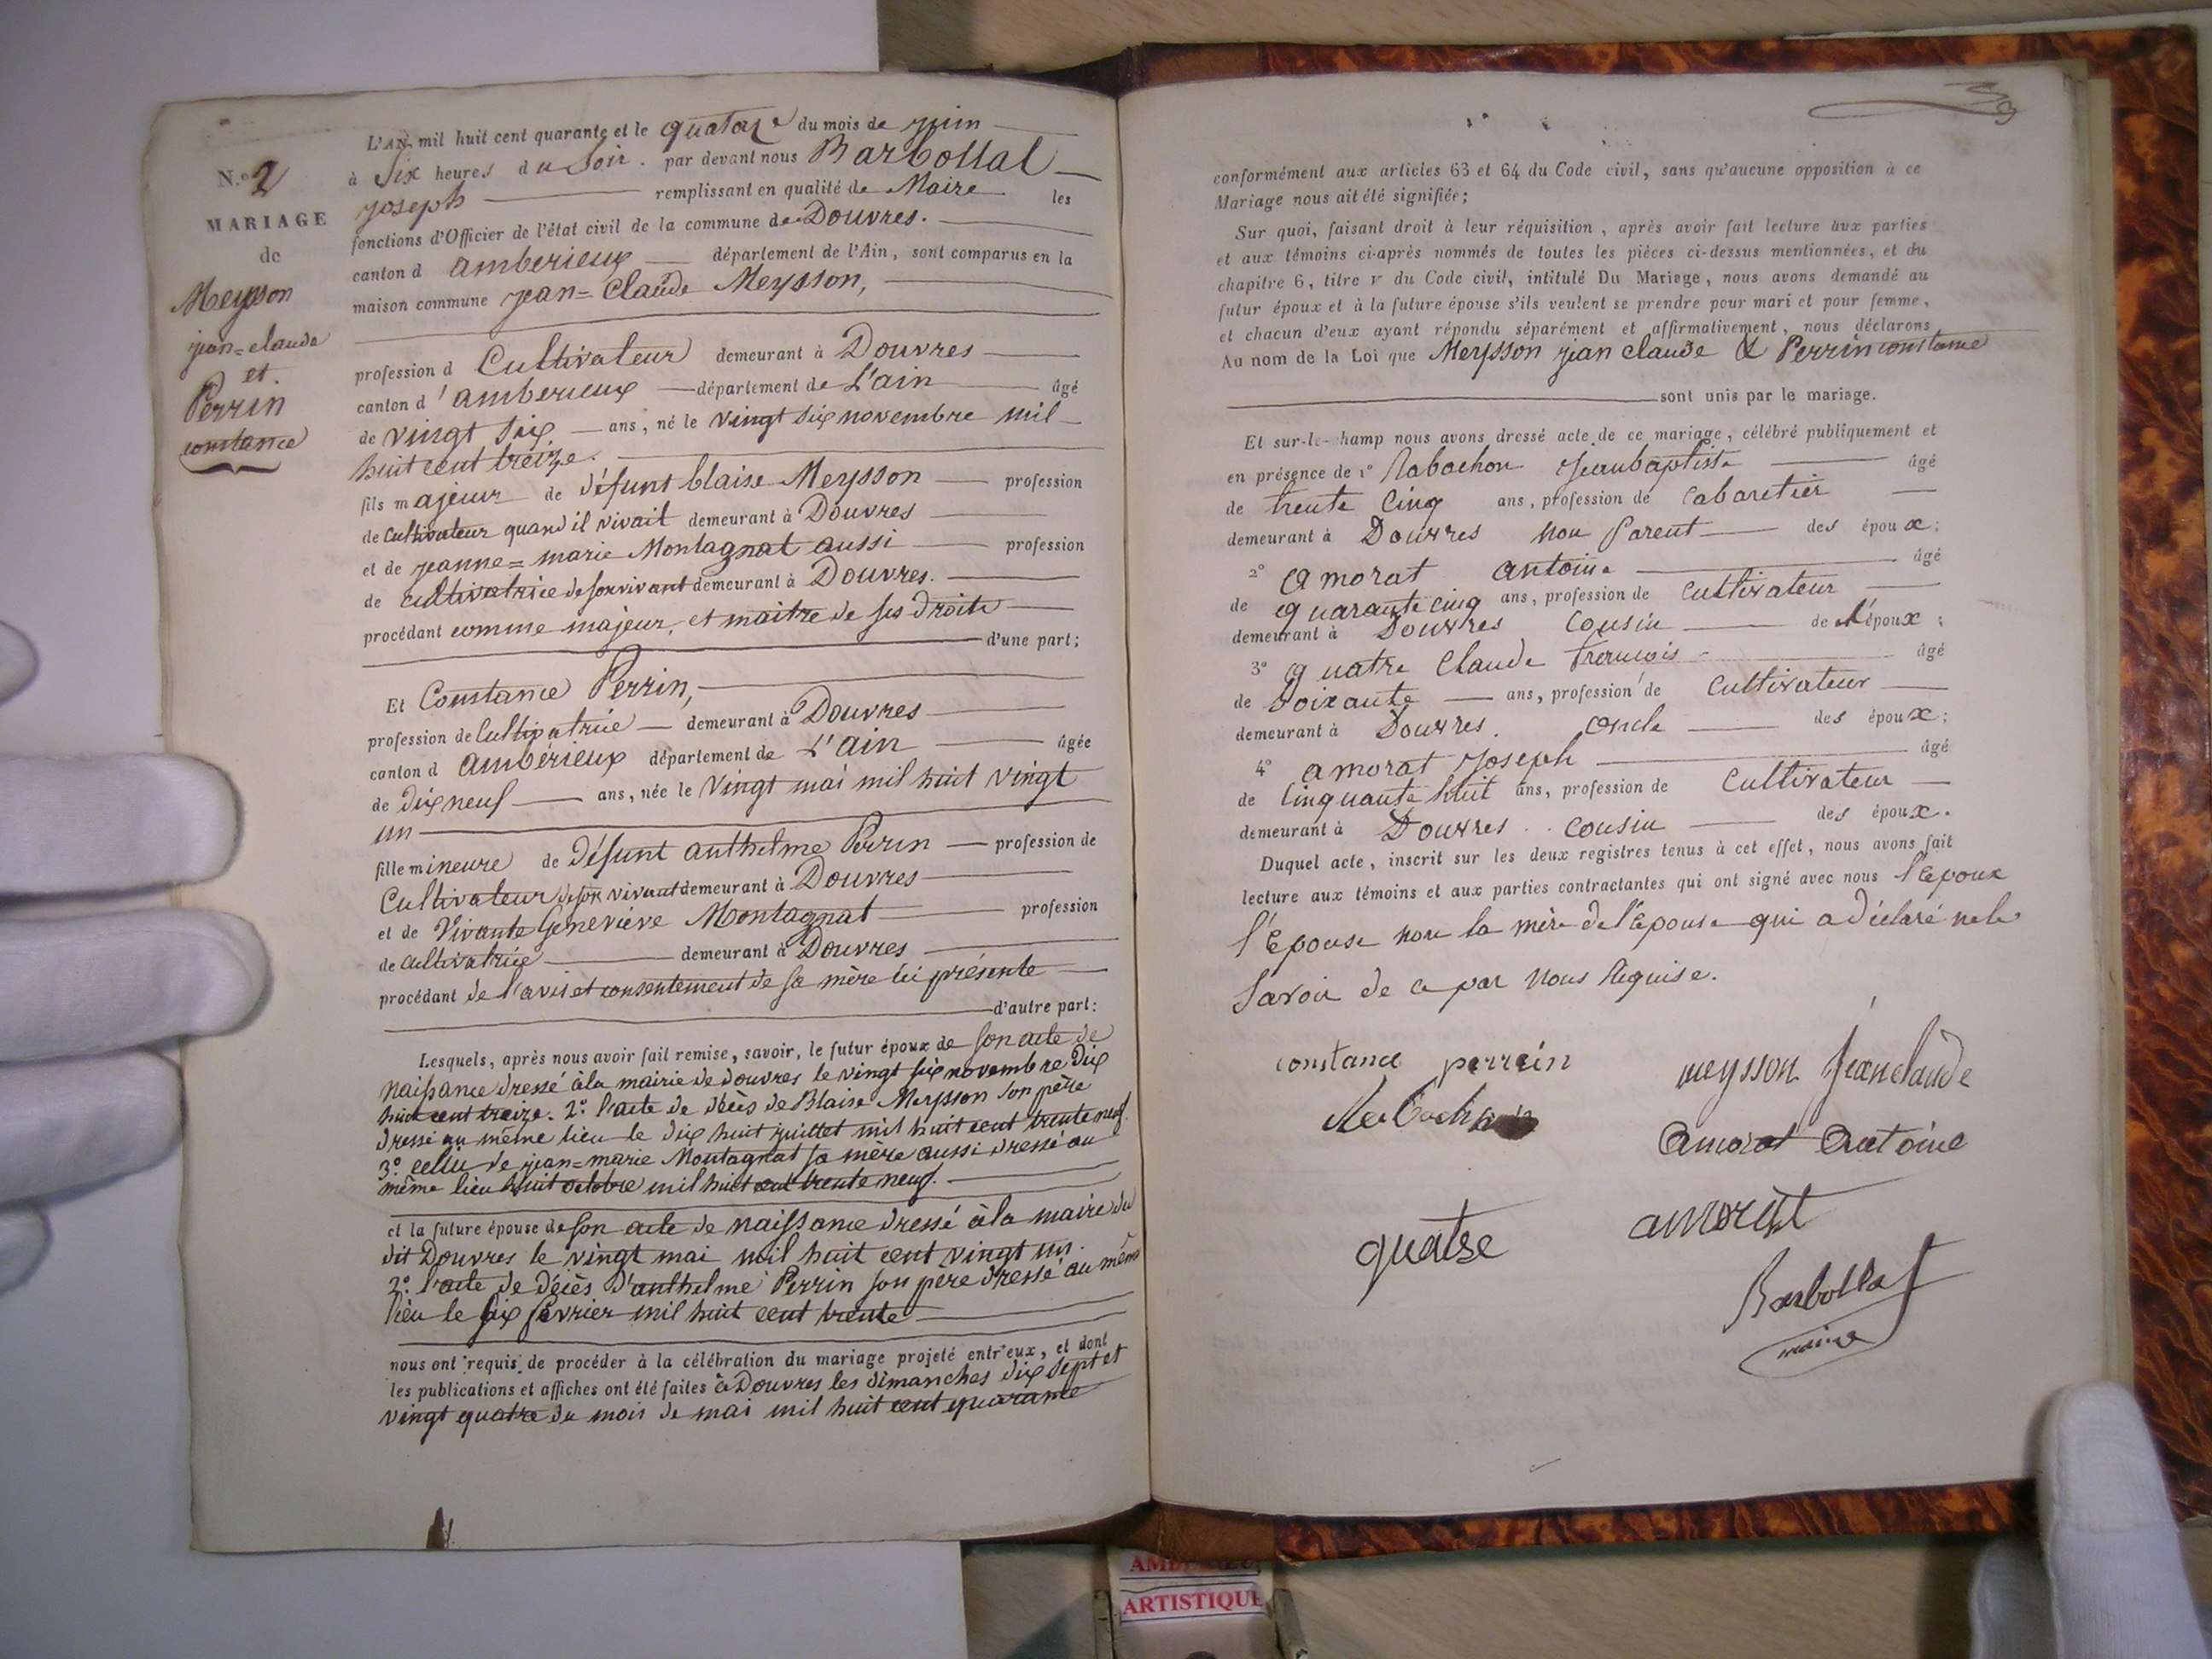 N.º 2
MARIAGE
de
Meysson
jean=claude
et.
Perrin
constance
L'AN mil huit cent quarante et le quatorze du mois de juin
à Six heures du Soir. par devant nous Barbollat
joseph remplissant en qualité de Maire les
fonctions d'Officier de l'état civil de la commune de Douvres.
canton d amberieux département de l'Ain, sont comparus en la
maison commune jean=Claude Meysson,
profession d Cultivateur demeurant à Douvres
canton d'amberieux département de L'ain âgé
de vingt six ans, né le vingt six novembre mil
huit cent treize.
fils majeur de défunt blaise Meysson profession
de Cultivateur quand il vivait demeurant à Douvres
et de jeanne=marie Montagnat aussi profession
de cultivatrice de son vivant demeurant à Douvres.
procédant comme majeur, et maitre de ses droits
d'une part;
Et Constance Perrin,
profession de Cultivatrice demeurant à Douvres
canton d ambérieux département de L'ain âgée
de dix neuf ans, née le vingt mai mil huit vingt
un
fille mineure de Défunt anthelme Perrin profession de
Cultivateur de son vivant demeurant à Douvres
et de Vivante Geneviève Montagnat profession
de cultivatrice demeurant à Douvres
procédant de l'avis et consentement de sa mère ici présente
d'autre part:
Lesquels, après nous avoir fait remise, savoir, le futur époux de son acte de
naissance dressé à la mairie de douvres le vingt six novembre dix
huit cent treize. 2º. l'acte de décès de Blaise Meysson son père
dressé au même lieu le dix huit juillet mil huit cent trente neuf.
3º. cellui de jean=marie Montagnat sa mère aussi dressé au
même lieu huit octobre mil huit cent trente neuf.
et la future épouse de son acte de naissance dressé à la maire du
dit Douvres le vingt mai mil huit cent vingt un.
2º. l'acte de décès d'anthelme Perrin son père dressé au même
lieu le six février mil huit cent trente
nous ont requis de procéder à la célébration du mariage projeté entr'eux, et dont
les publications et affiches ont été faites à Douvres les dimanches dix sept et
vingt quatre du mois de mai mil huit cent quarante
conformément aux articles 63 et 64 du Code civil, sans qu'aucune opposition à ce
Mariage nous ait été signifiée;
Sur quoi, faisant droit à leur réquisition, après avoir fait lecture aux parties
et aux témoins ci-après nommés de toutes les pièces ci-dessus mentionnées, et du
chapitre 6, titre v du Code civil, intitulé Du Mariage, nous avons demandé au
futur époux et à la future épouse s'ils veulent se prendre pour mari et pour femme,
et chacun d'eux ayant répondu séparément et affirmativement, nous déclarons
Au nom de la Loi que Meysson jean claude & Perrin constance
sont unis par le mariage.
Et sur-le-champ nous avons dressé acte de ce mariage, célébré publiquement et
en présence de 1º Rabachon Jean baptiste âgé
de trente cinq ans, profession de Cabaretier
demeurant à Douvres non Parent des époux;
2º amorat antoine âgé
de quarante cinq ans, profession de Cultivateur
demeurant à Douvres Cousin de l'époux;
3º quatre Claude François âgé
de Soixante ans, profession de Cultivateur
demeurant à Douvres. Oncle des époux;
4º amorat Joseph âgé
de Cinquante huit ans, profession de Cultivateur
demeurant à Douvres cousin des époux.
Duquel acte, inscrit sur les deux registres tenus à cet effet, nous avons fait
lecture aux témoins et aux parties contractantes qui ont signé avec nous l'Epoux
l'Epouse non la mère de l'Epouse qui a déclaré ne le
Savoir de ce par Nous Requise.
constance perrein
meysson Jean claude
amorat antoine
quatse
amorat
Barbollat
maire
ARTISTIQUE